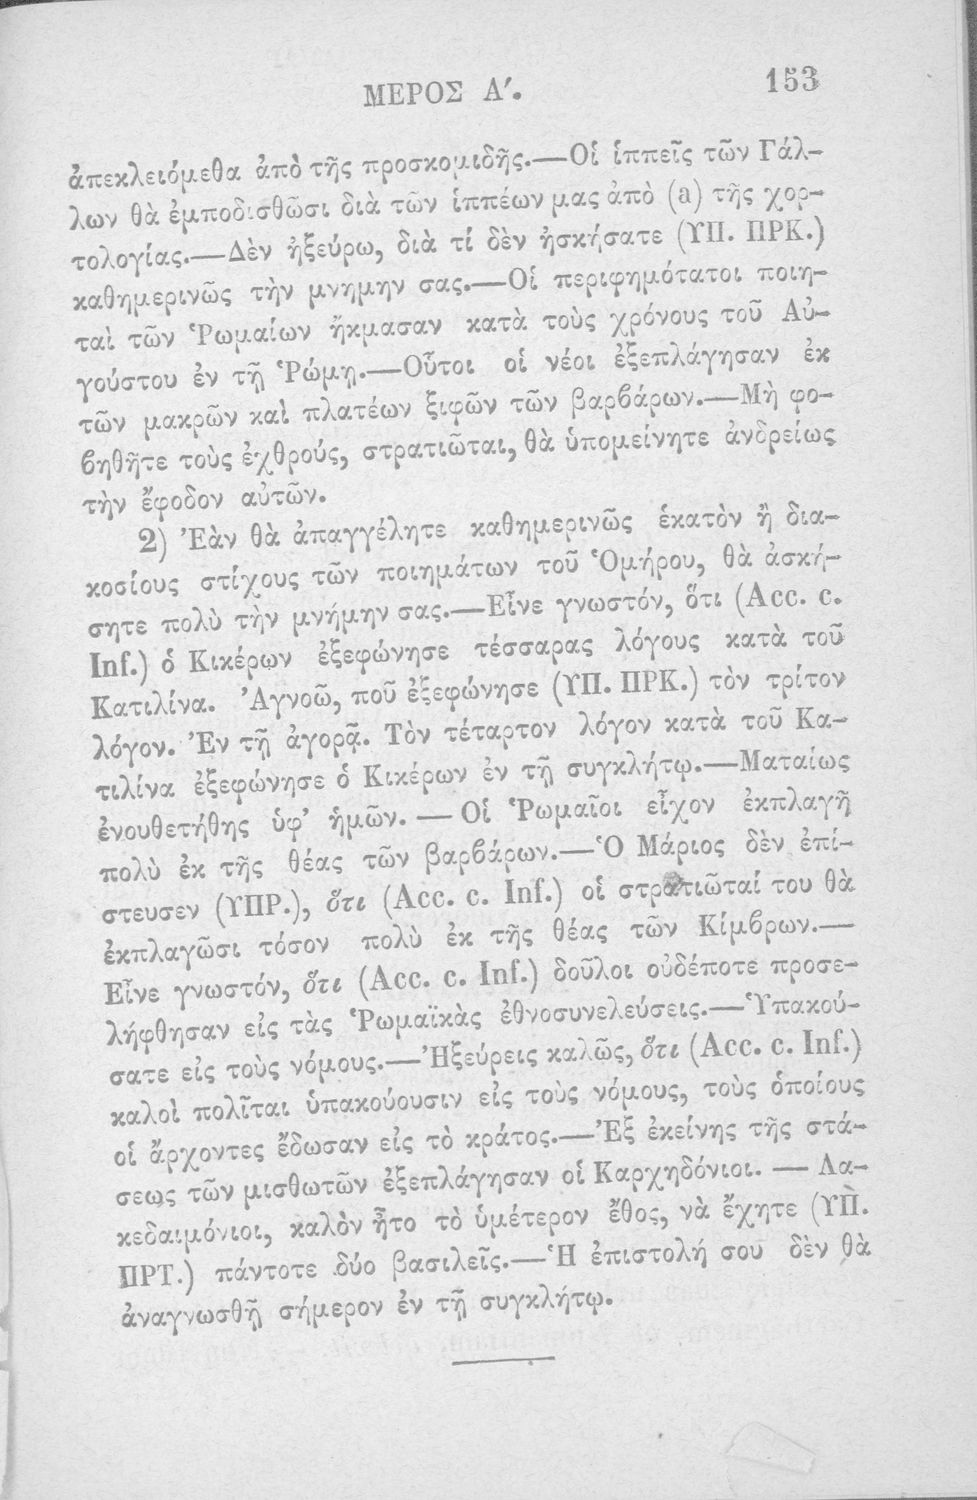 ΜΕΡΟΣ Α΄. 153
ἀπεκλειόμεθα ἀπὸ τῆς προσκομιδῆς.—Οἱ ἱππεῖς τῶν Γάλ-
λων θὰ ἐμποδισθῶσι διὰ τῶν ἱππέων μας ἀπὸ (a) τῆς χορ-
τολογίας.—Δὲν ἠξεύρω, διὰ τί δὲν ἠσκήσατε (ΥΠ. ΠΡΚ.)
καθημερινῶς τὴν μνημην σας.—Οἱ περιφημότατοι ποιη-
ταὶ τῶν Ῥωμαίων ἤκμασαν κατὰ τοὺς χρόνους τοῦ Αὐ-
γούστου ἐν τῇ Ῥώμῃ.—Οὗτοι οἱ νέοι ἐξεπλάγησαν ἐκ
τῶν μακρῶν καὶ πλατέων ξιφῶν τῶν βαρβάρων.—Μὴ φο-
βηθῆτε τοὺς ἐχθρούς, στρατιῶται, θὰ ὑπομείνητε ἀνδρείως
τὴν ἔφοδον αὐτῶν.
2) Ἐὰν θὰ ἀπαγγέλητε καθημερινῶς ἑκατὸν ἢ δια-
κοσίους στίχους τῶν ποιημάτων τοῦ Ὁμήρου, θὰ ἀσκή-
σητε πολὺ τὴν μνήμην σας.—Εἶνε γνωστόν, ὅτι (Acc. c.
Inf.) ὁ Κικέρων ἐξεφώνησε τέσσαρας λόγους κατὰ τοῦ
Κατιλίνα. Ἀγνοῶ, ποῦ ἐξεφώνησε (ΥΠ. ΠΡΚ.) τὸν τρίτον
λόγον. Ἐν τῇ ἀγορᾷ. Τὸν τέταρτον λόγον κατὰ τοῦ Κα-
τιλίνα ἐξεφώνησε ὁ Κικέρων ἐν τῇ συγκλήτῳ.—Ματαίως
ἐνουθετήθης ὑφ' ἡμῶν. — Οἱ Ῥωμαῖοι εἶχον ἐκπλαγῆ
πολὺ ἐκ τῆς θέας τῶν βαρβάρων.—Ὁ Μάριος δὲν ἐπί-
στευσεν (ΥΠΡ.), ὅτι (Acc. c. Inf.) οἱ στρατιῶταί του θὰ
ἐκπλαγῶσι τόσον πολὺ ἐκ τῆς θέας τῶν Κίμβρων.—
Εἶνε γνωστόν, ὅτι (Acc. c. Inf.) δοῦλοι οὐδέποτε προσε-
λήφθησαν εἰς τὰς Ῥωμαϊκὰς ἐθνοσυνελεύσεις.—Ὑπακού-
σατε εἰς τοὺς νόμους.—Ἠξεύρεις καλῶς, ὅτι (Acc. c. Inf.)
καλοὶ πολῖται ὑπακούουσιν εἰς τοὺς νόμους, τοὺς ὁποίους
οἱ ἄρχοντες ἔδωσαν εἰς τὸ κράτος.—Ἐξ ἐκείνης τῆς στά-
σεως τῶν μισθωτῶν ἐξεπλάγησαν οἱ Καρχηδόνιοι. — Λα-
κεδαιμόνιοι, καλὸν ἦτο τὸ ὑμέτερον ἔθος, νὰ ἔχητε (ΥΠ.
ΠΡΤ.) πάντοτε δύο βασιλεῖς.—Ἡ ἐπιστολή σου δὲν θὰ
ἀναγνωσθῇ σήμερον ἐν τῇ συγκλήτῳ.